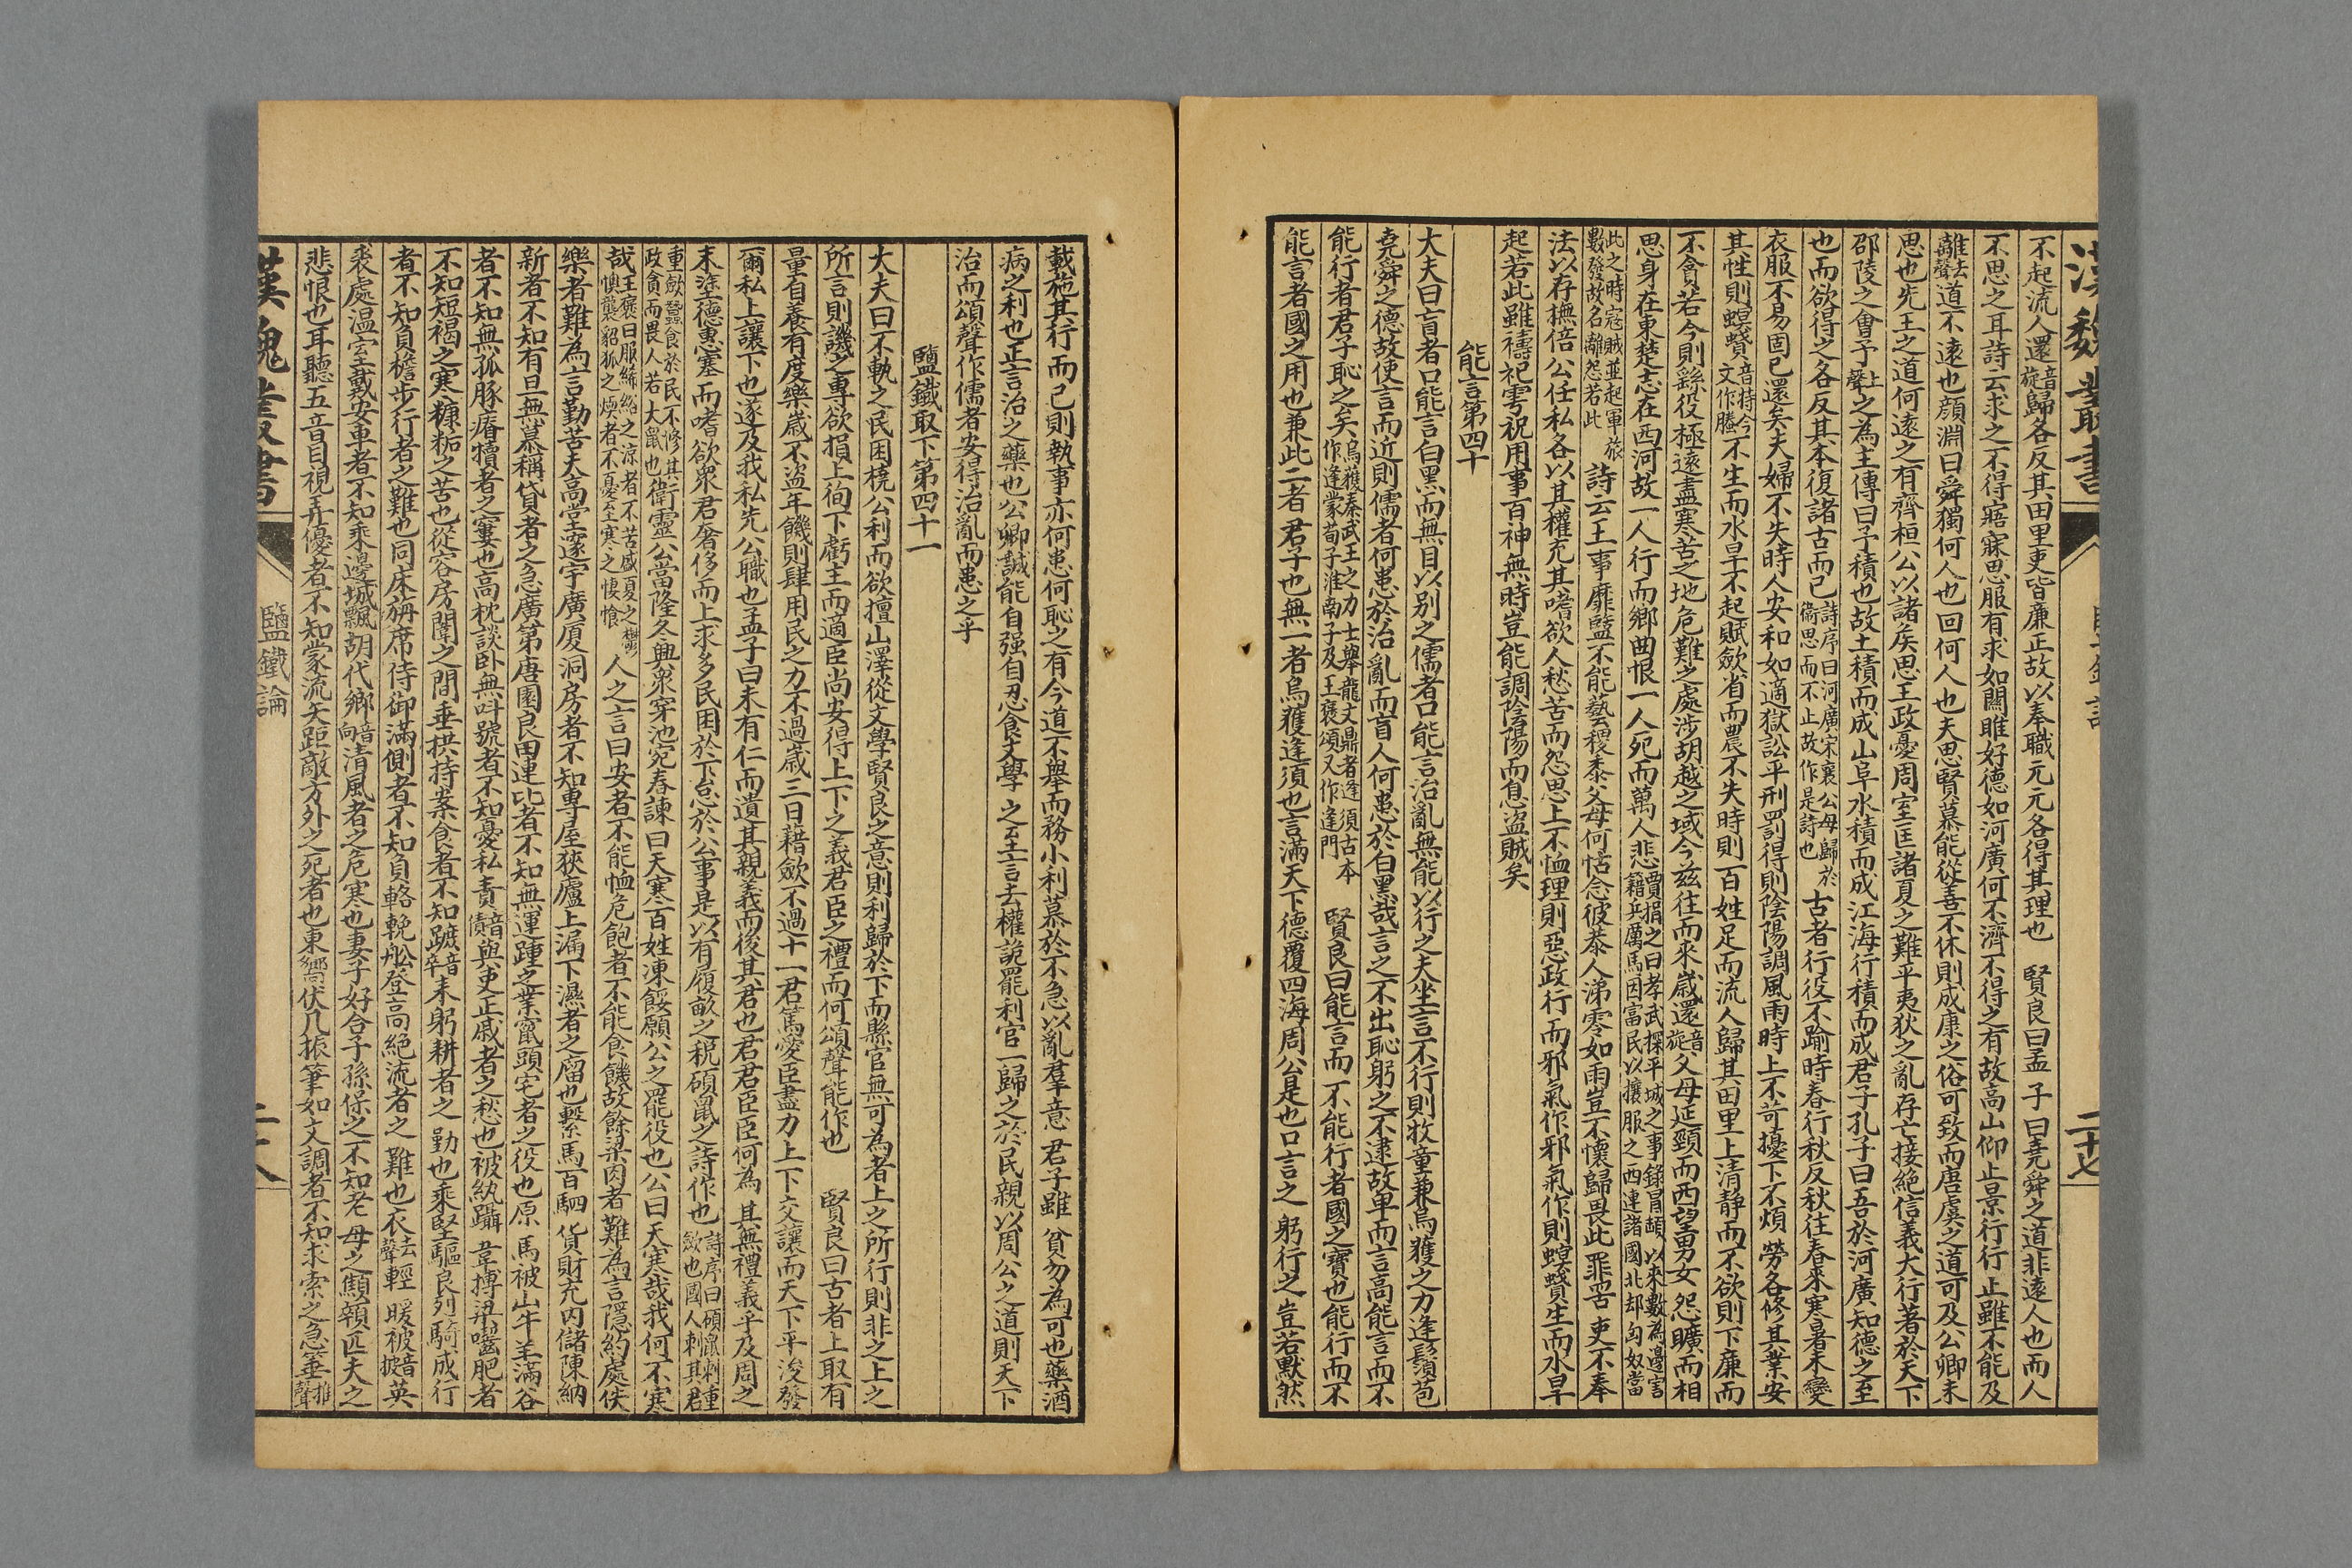 漢魏叢書 鹽鐵論 二十七
不起流人還音旋歸各反其田里吏皆廉正故以奉職元元各得其理也 賢良曰孟子曰堯舜之道非遠人也而人
不思之耳詩云求之不得寤寐思服有求如關雎好德如河廣何不濟不得之有故高山仰止景行行止雖不能及
離去聲道不遠也顔淵曰舜獨何人也回何人也夫思賢慕能從善不休則成康之俗可致而唐虞之道可及公卿未
思也先王之道何遠之有齊桓公以諸矦思王政憂周室匡諸夏之難平夷狄之亂存亡接絶信義大行著於天下
邵陵之會予上聲之為主傳曰予積也故土積而成山阜水積而成江海行積而成君子孔子曰吾於河廣知德之至
也而欲得之各反其本復諸古而已詩序曰河廣宋襄公母歸於衞思而不止故作是詩也古者行役不踰時春行秋反秋往春來寒暑未變
衣服不易固已還矣夫婦不失時人安和如適獄訟平刑罰得則陰陽調風雨時上不苛擾下不煩勞各修其業安
其性則螟蟘音特今文作螣不生而水旱不起賦斂省而農不失時則百姓足而流人歸其田里上清靜而不欲則下廉而
不貪若今則繇役極遠盡寒苦之地危難之處涉胡越之域今茲往而來歲還音旋父母延頸而西望男女怨曠而相
思身在東楚志在西河故一人行而鄉曲恨一人死而萬人悲賈捐之曰孝武探平城之事錄冒頓以來數為邊害籍兵厲馬因富民以攘服之西連諸國北却匈奴當
此之時寇賊並起軍旅數發故名離怨若此 詩云王事靡盬不能藝稷黍父母何怙念彼恭人涕零如雨豈不懷歸畏此罪罟吏不奉
法以存撫倍公任私各以其權充其嗜欲人愁苦而怨思上不恤理則惡政行而邪氣作邪氣作則螟蟘生而水旱
起若此雖禱祀雩祝用事百神無時豈能調陰陽而息盜賊矣
能言第四十
大夫曰盲者口能言白黑而無目以别之儒者口能言治亂無能以行之夫坐言不行則牧童兼烏獲之力逢鬚苞
堯舜之德故使言而近則儒者何患於治亂而盲人何患於白黑哉言之不出恥躬之不逮故卑而言高能言而不
能行者君子恥之矣烏獲秦武王之力士舉龍文鼎者逢須古本作逢蒙荀子淮南子及王褒頌又作逢門 賢良曰能言而不能行者國之寶也能行而不
能言者國之用也兼此二者君子也無一者烏獲逢須也言滿天下德覆四海周公是也口言之躬行之豈若默然
載施其行而已則執事亦何患何恥之有今道不舉而務小利慕於不急以亂羣意君子雖貧勿為可也藥酒
病之利也正言治之藥也公卿誠能自强自忍食文學之至言去權詭罷利官一歸之於民親以周公之道則天下
治而頌聲作儒者安得治亂而患之乎
鹽鐵取下第四十一
大夫曰不軌之民困橈公利而欲擅山澤從文學賢良之意則利歸於下而縣官無可為者上之所行則非之上之
所言則譏之專欲損上徇下虧主而適臣尚安得上下之義君臣之禮而何頌聲能作也 賢良曰古者上取有
量自養有度樂歲不盜年饑則肆用民之力不過歲三日藉斂不過十一君篤愛臣盡力上下交讓而天下平浚發
爾私上讓下也遂及我私先公職也孟子曰未有仁而遺其親義而後其君也君君臣臣何為其無禮義乎及周之
末塗德惠塞而嗜欲衆君奢侈而上求多民困於下怠於公事是以有履畝之稅碩鼠之詩作也詩序曰碩鼠刺重斂也國人刺其君
重斂蠶食於民不修其政貪而畏人若大鼠也衛靈公當隆冬興衆穿池宛春諫曰天寒百姓凍餒願公之罷役也公曰天寒哉我何不寒
哉王褒曰服絺綌之凉者不苦盛夏之鬱燠襲貂狐之煗者不憂至寒之悽愴人之言曰安者不能恤危飽者不能食饑故餘粱肉者難為言隱約處佚
樂者難為言勤苦夫高堂邃宇廣厦洞房者不知專屋狹廬上漏下濕者之㢠也繫馬百駟貨財充内儲陳納
新者不知有旦無暮稱貸者之急廣第唐園良田連比者不知無運踵之業竄頭宅者之役也原馬被山牛羊滿谷
者不知無孤豚瘠犢者之窶也高枕談卧無呌號者不知憂私責音債與吏正戚者之愁也被紈躡韋搏粱囓肥者
不知短褐之寒糠粃之苦也從容房闈之間垂拱持案食者不知蹠音卒耒躬耕者之勤也乘堅驅良列騎成行
者不知負檐步行者之難也同床旃席侍御滿側者不知負輅輓舩登高絶流者之難也衣去聲輕暖被音披英
裘處温室載安車者不知乘邊城飄胡代鄉音向清風者之危寒也妻子好合子孫保之不知老母之顦顇匹夫之
悲恨也耳聽五音目視弄優者不知蒙流矢距敵方外之死者也東嚮伏几振筆如文調者不知求索之急箠推聲
漢魏叢書 鹽鐵論 二十八